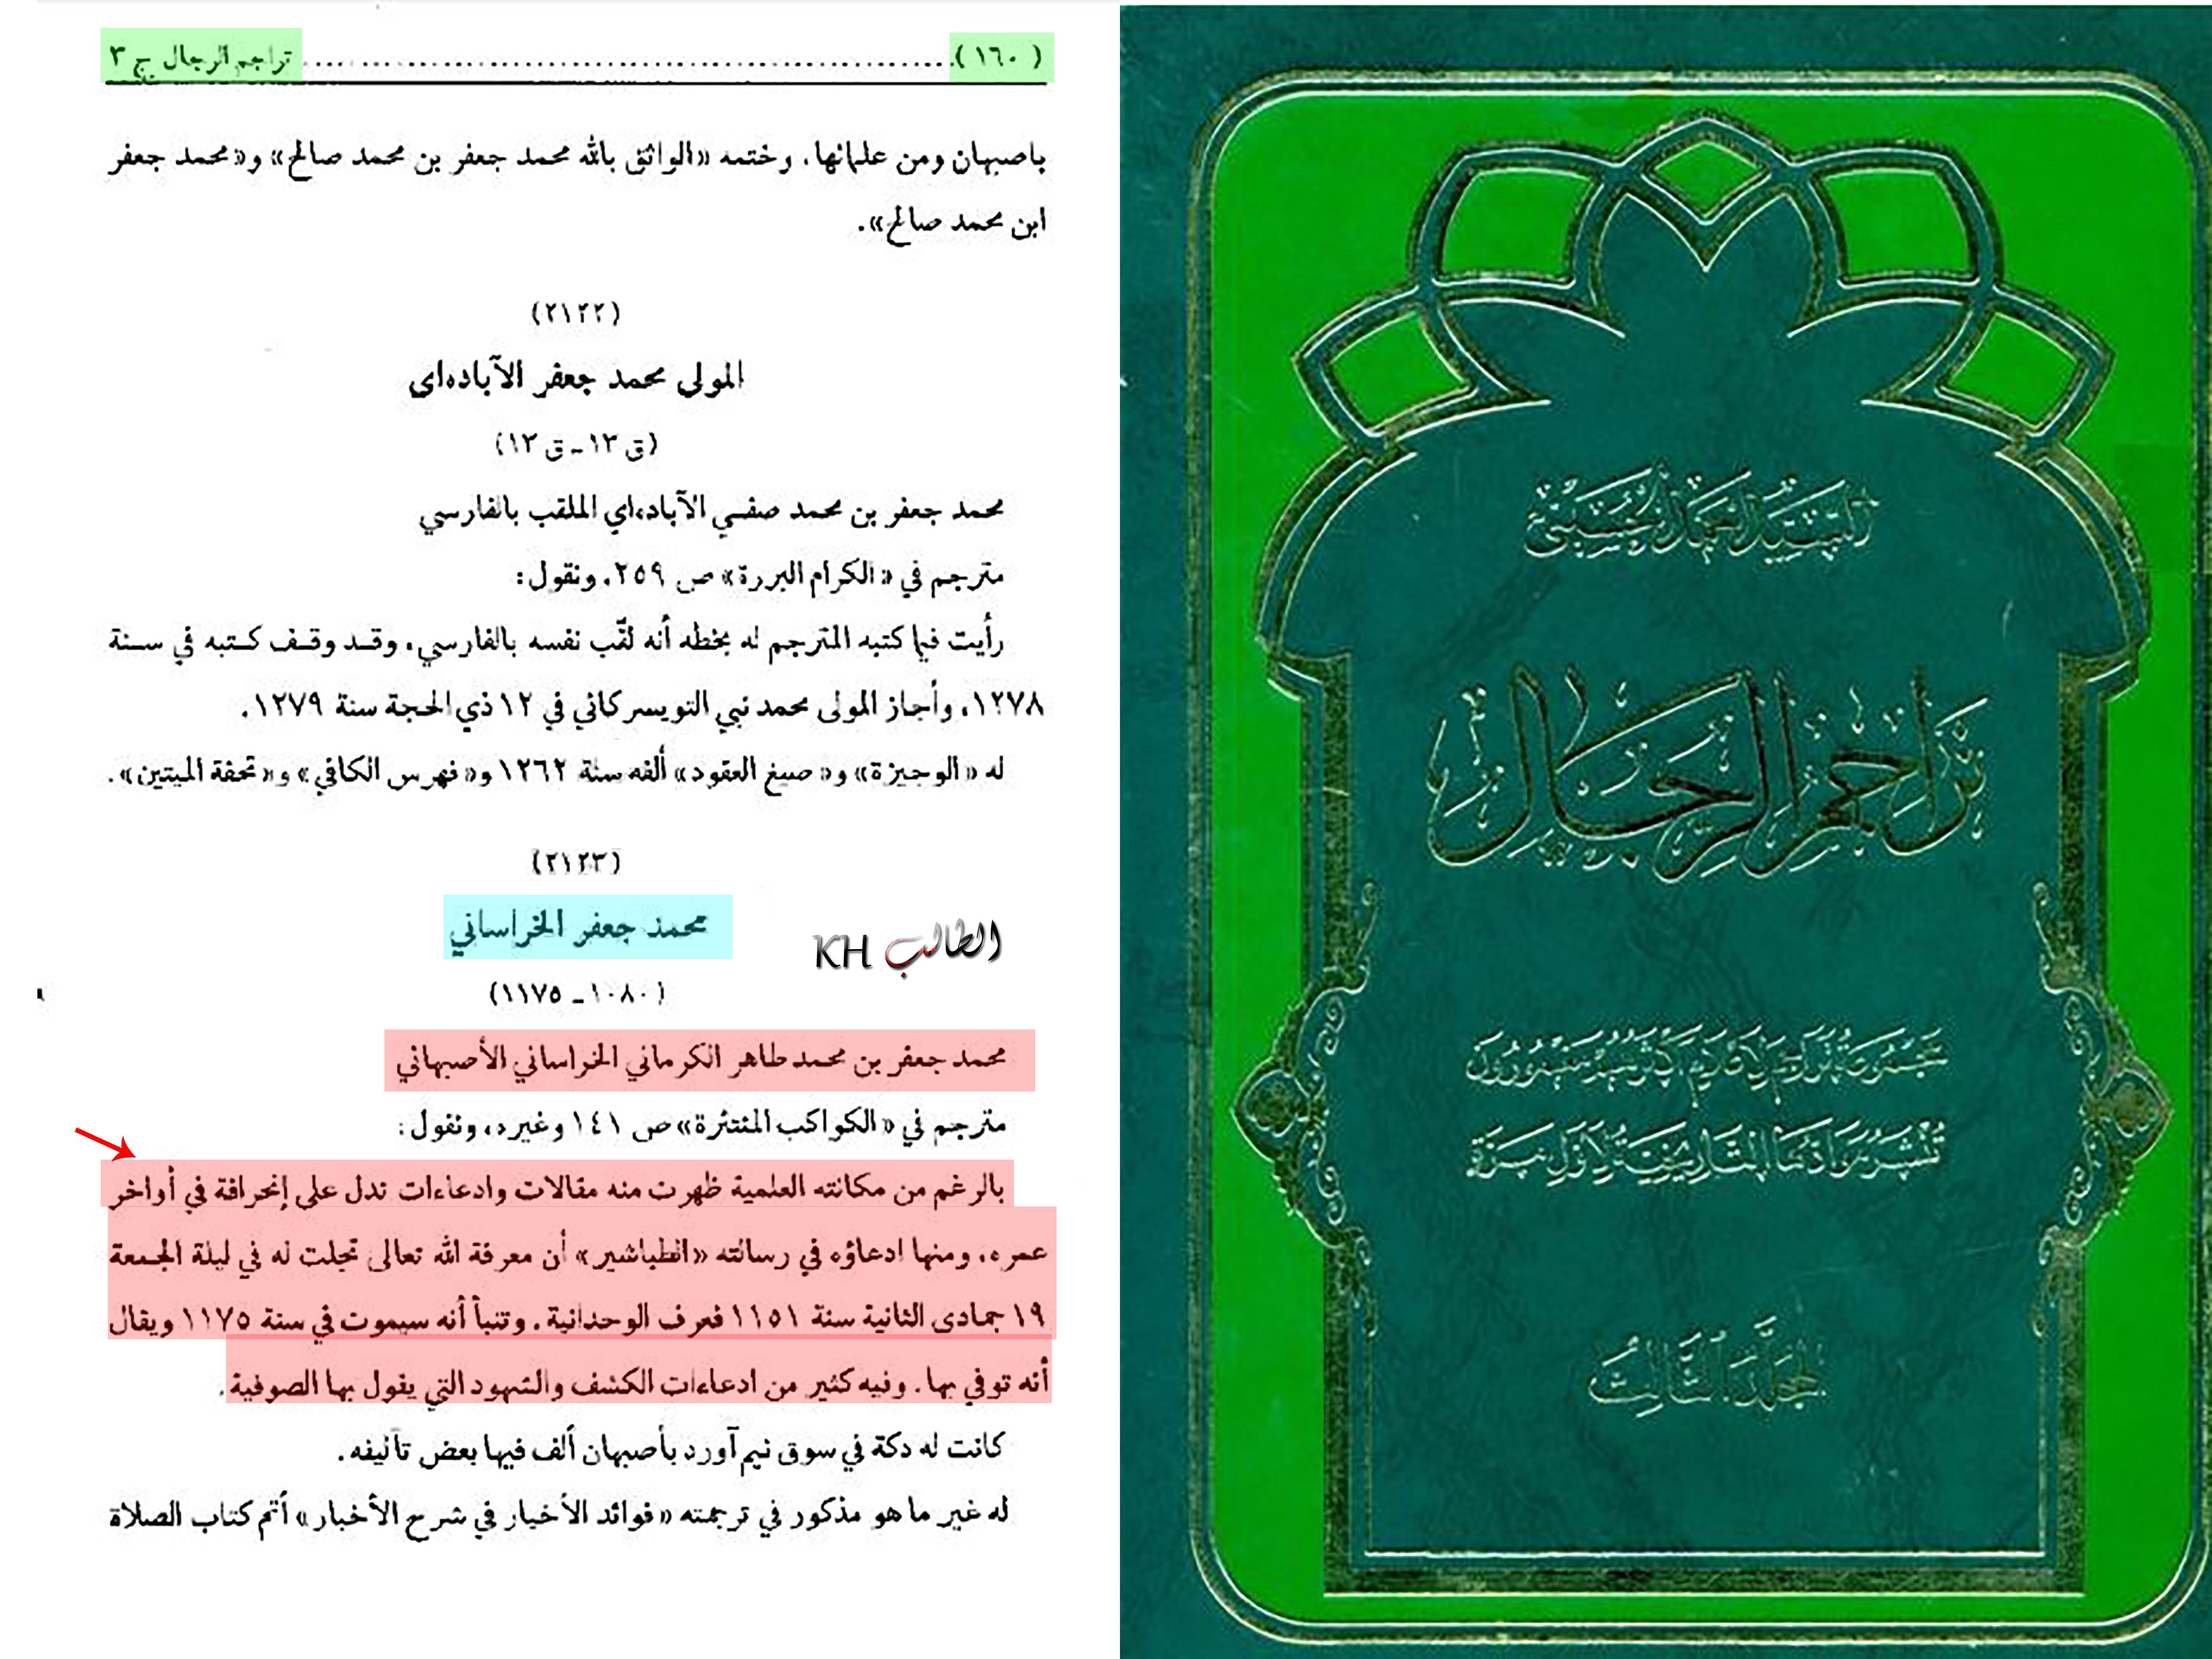 (١٦٠) ................................ تراجم الرجال ج ٣
باصبهان ومن علمائها. وختمه «الواثق بالله محمد جعفر بن محمد صالح» و«محمد جعفر
ابن محمد صالح».
(٢١٢٢)
المولى محمد جعفر الآباده‌اى
(ق ١٣ ـ ق ١٣)
محمد جعفر بن محمد صفي الآباده‌اي الملقب بالفارسي
مترجم في «الكرام البررة» ص ٢٥٩، ونقول:
رأيت فيما كتبه المترجم له بخطه أنه لقّب نفسه بالفارسي، وقد وقف كتبه في سنة
١٢٧٨، وأجاز المولى محمد نبي التويسركاني في ١٢ ذي الحجة سنة ١٢٧٩.
له «الوجيزة» و«صيغ العقود» ألفه سنة ١٢٦٢ و«فهرس الكافي» و«تحفة الميتين».
(٢١٢٣)
محمد جعفر الخراساني
الطالب KH
(١٠٨٠ ـ ١١٧٥)
محمد جعفر بن محمد طاهر الكرماني الخراساني الأصبهاني
مترجم في «الكواكب المنتثرة» ص ١٤١ وغيره، ونقول:
بالرغم من مكانته العلمية ظهرت منه مقالات وادعاءات تدل على إنحرافة في أواخر
عمره، ومنها ادعاؤه في رسالته «الطباشير» أن معرفة الله تعالى تجلت له في ليلة الجمعة
١٩ جمادى الثانية سنة ١١٥١ فعرف الوحدانية. وتنبأ أنه سيموت في سنة ١١٧٥ ويقال
أنه توفي بها. وفيه كثير من ادعاءات الكشف والشهود التي يقول بها الصوفية.
كانت له دكة في سوق نيم آورد بأصبهان ألف فيها بعض تآليفه.
له غير ما هو مذكور في ترجمته «فوائد الأخيار في شرح الأخبار» أتم كتاب الصلاة
السيد أحمد الحسيني
تراجم الرجال
مجموعة تراجم لأعلام أكثرهم مغمورون
تنشر موادها التاريخية لأول مرة
المجلد الثالث